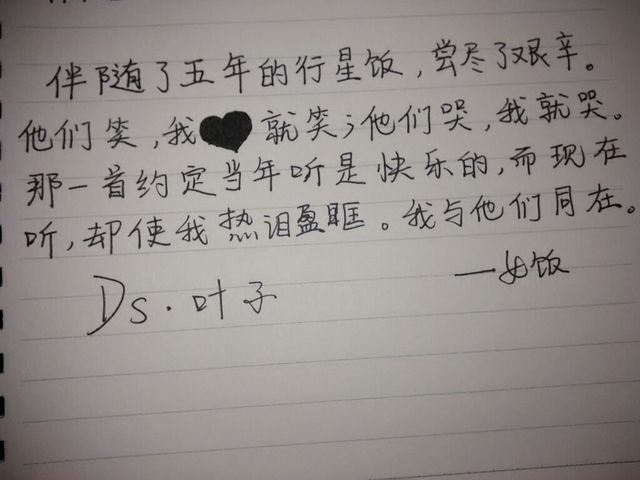 伴随了五年的行星饭，尝尽了艰辛。
他们笑，我就笑；他们哭，我就哭。
那一首约定当年听是快乐的，而现在
听，却使我热泪盈眶。我与他们同在。
一女饭
Ds.叶子